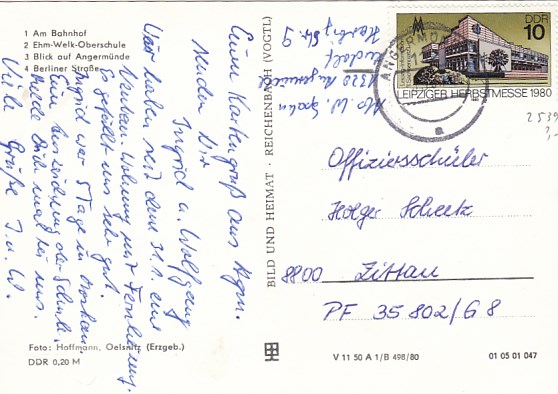 1 Am Bahnhof
2 Ehm-Welk-Oberschule
3 Blick auf Angermünde
4 Berliner Straße
Einen Kartengruß aus Agm.
senden Dir
Ingrid u. Wolfgang
Wir haben seit dem 31.1. eine
Neubau-Wohnung mit Fernheizung.
Es gefällt uns sehr gut.
Ingrid war 5 Tage in Moskau.
Eine Auszeichnung der Schule.
Melde Dich mal bei uns.
Viele Grüße I. u. W.
Foto: Hoffmann, Oelsnitz (Erzgeb.)
DDR 0,20 M
BILD UND HEIMAT · REICHENBACH (VOGTL)
Abs. W.
1320 Angermünde
Str. 9
DDR
10
LEIPZIGER HERBSTMESSE 1980
ANGERMÜ
a
2539
Offiziersschüler
Holger
8800 Zittau
PF 35 802/G8
V 11 50 A 1/B 498/80
01 05 01 047